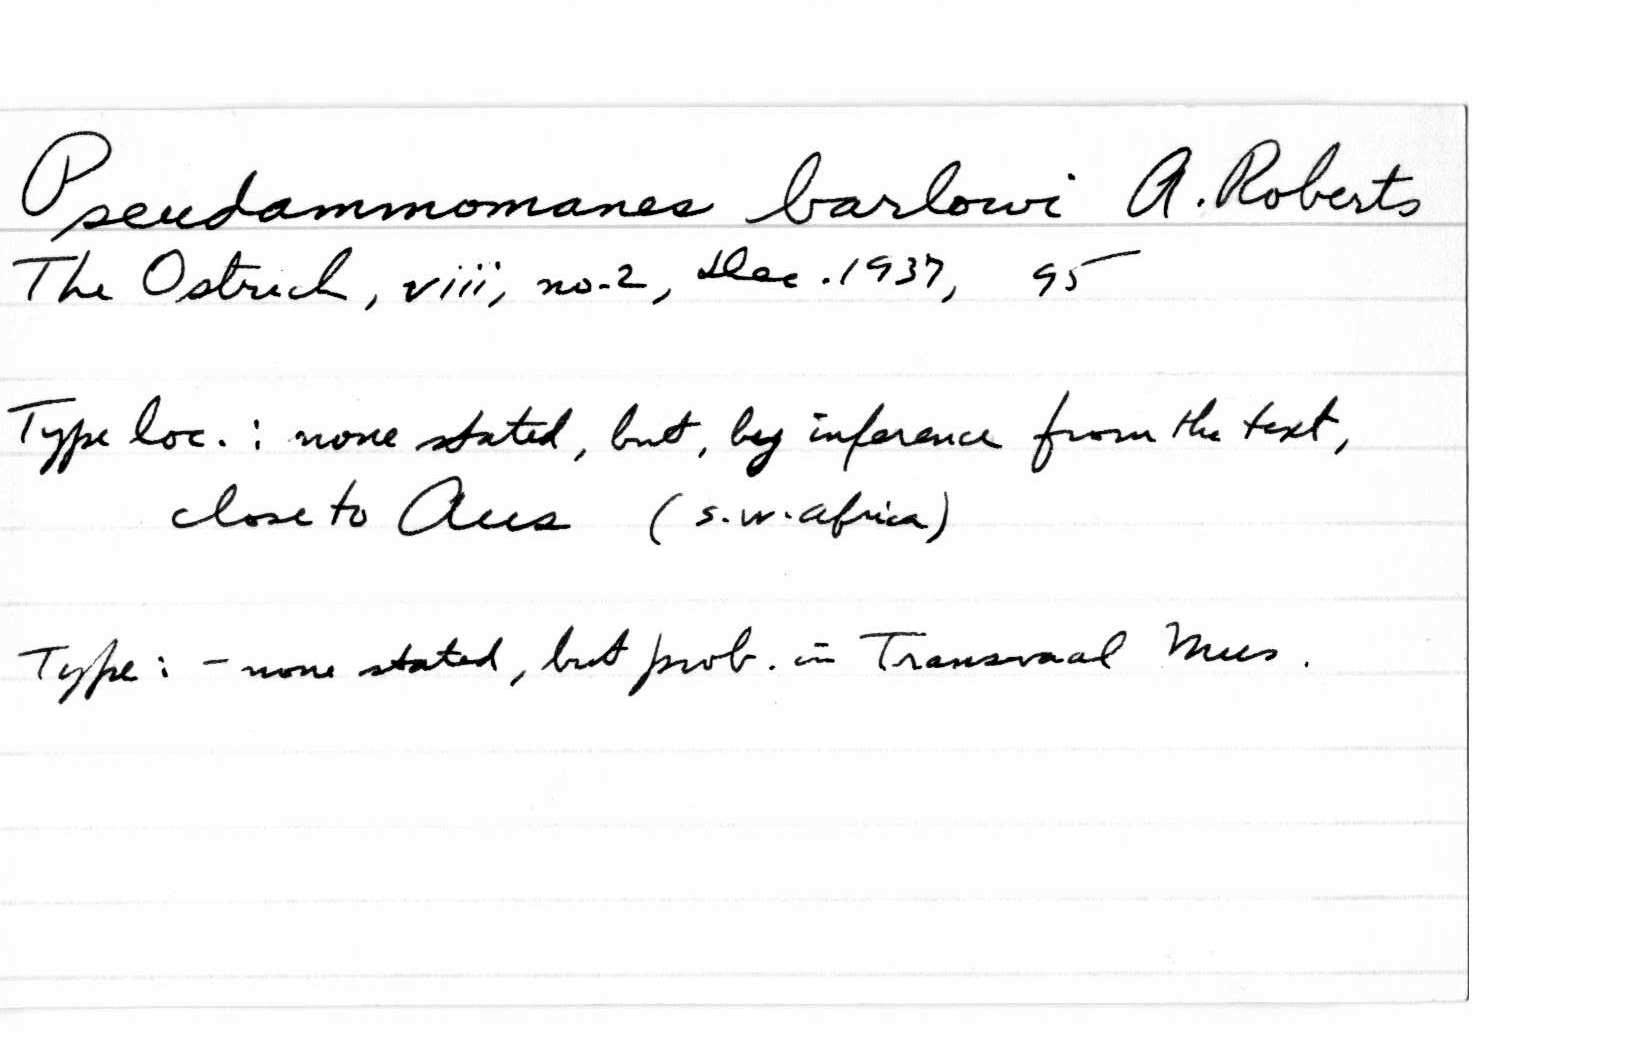 Pseudammomanes barlowi A. Roberts
The Ostrich, viii, no. 2, Dec. 1937, 95
Type loc. : none stated, but, by inference from the text,
close to Aus (S.W. Africa)
Type : - none stated, but prob. in Transvaal Mus.